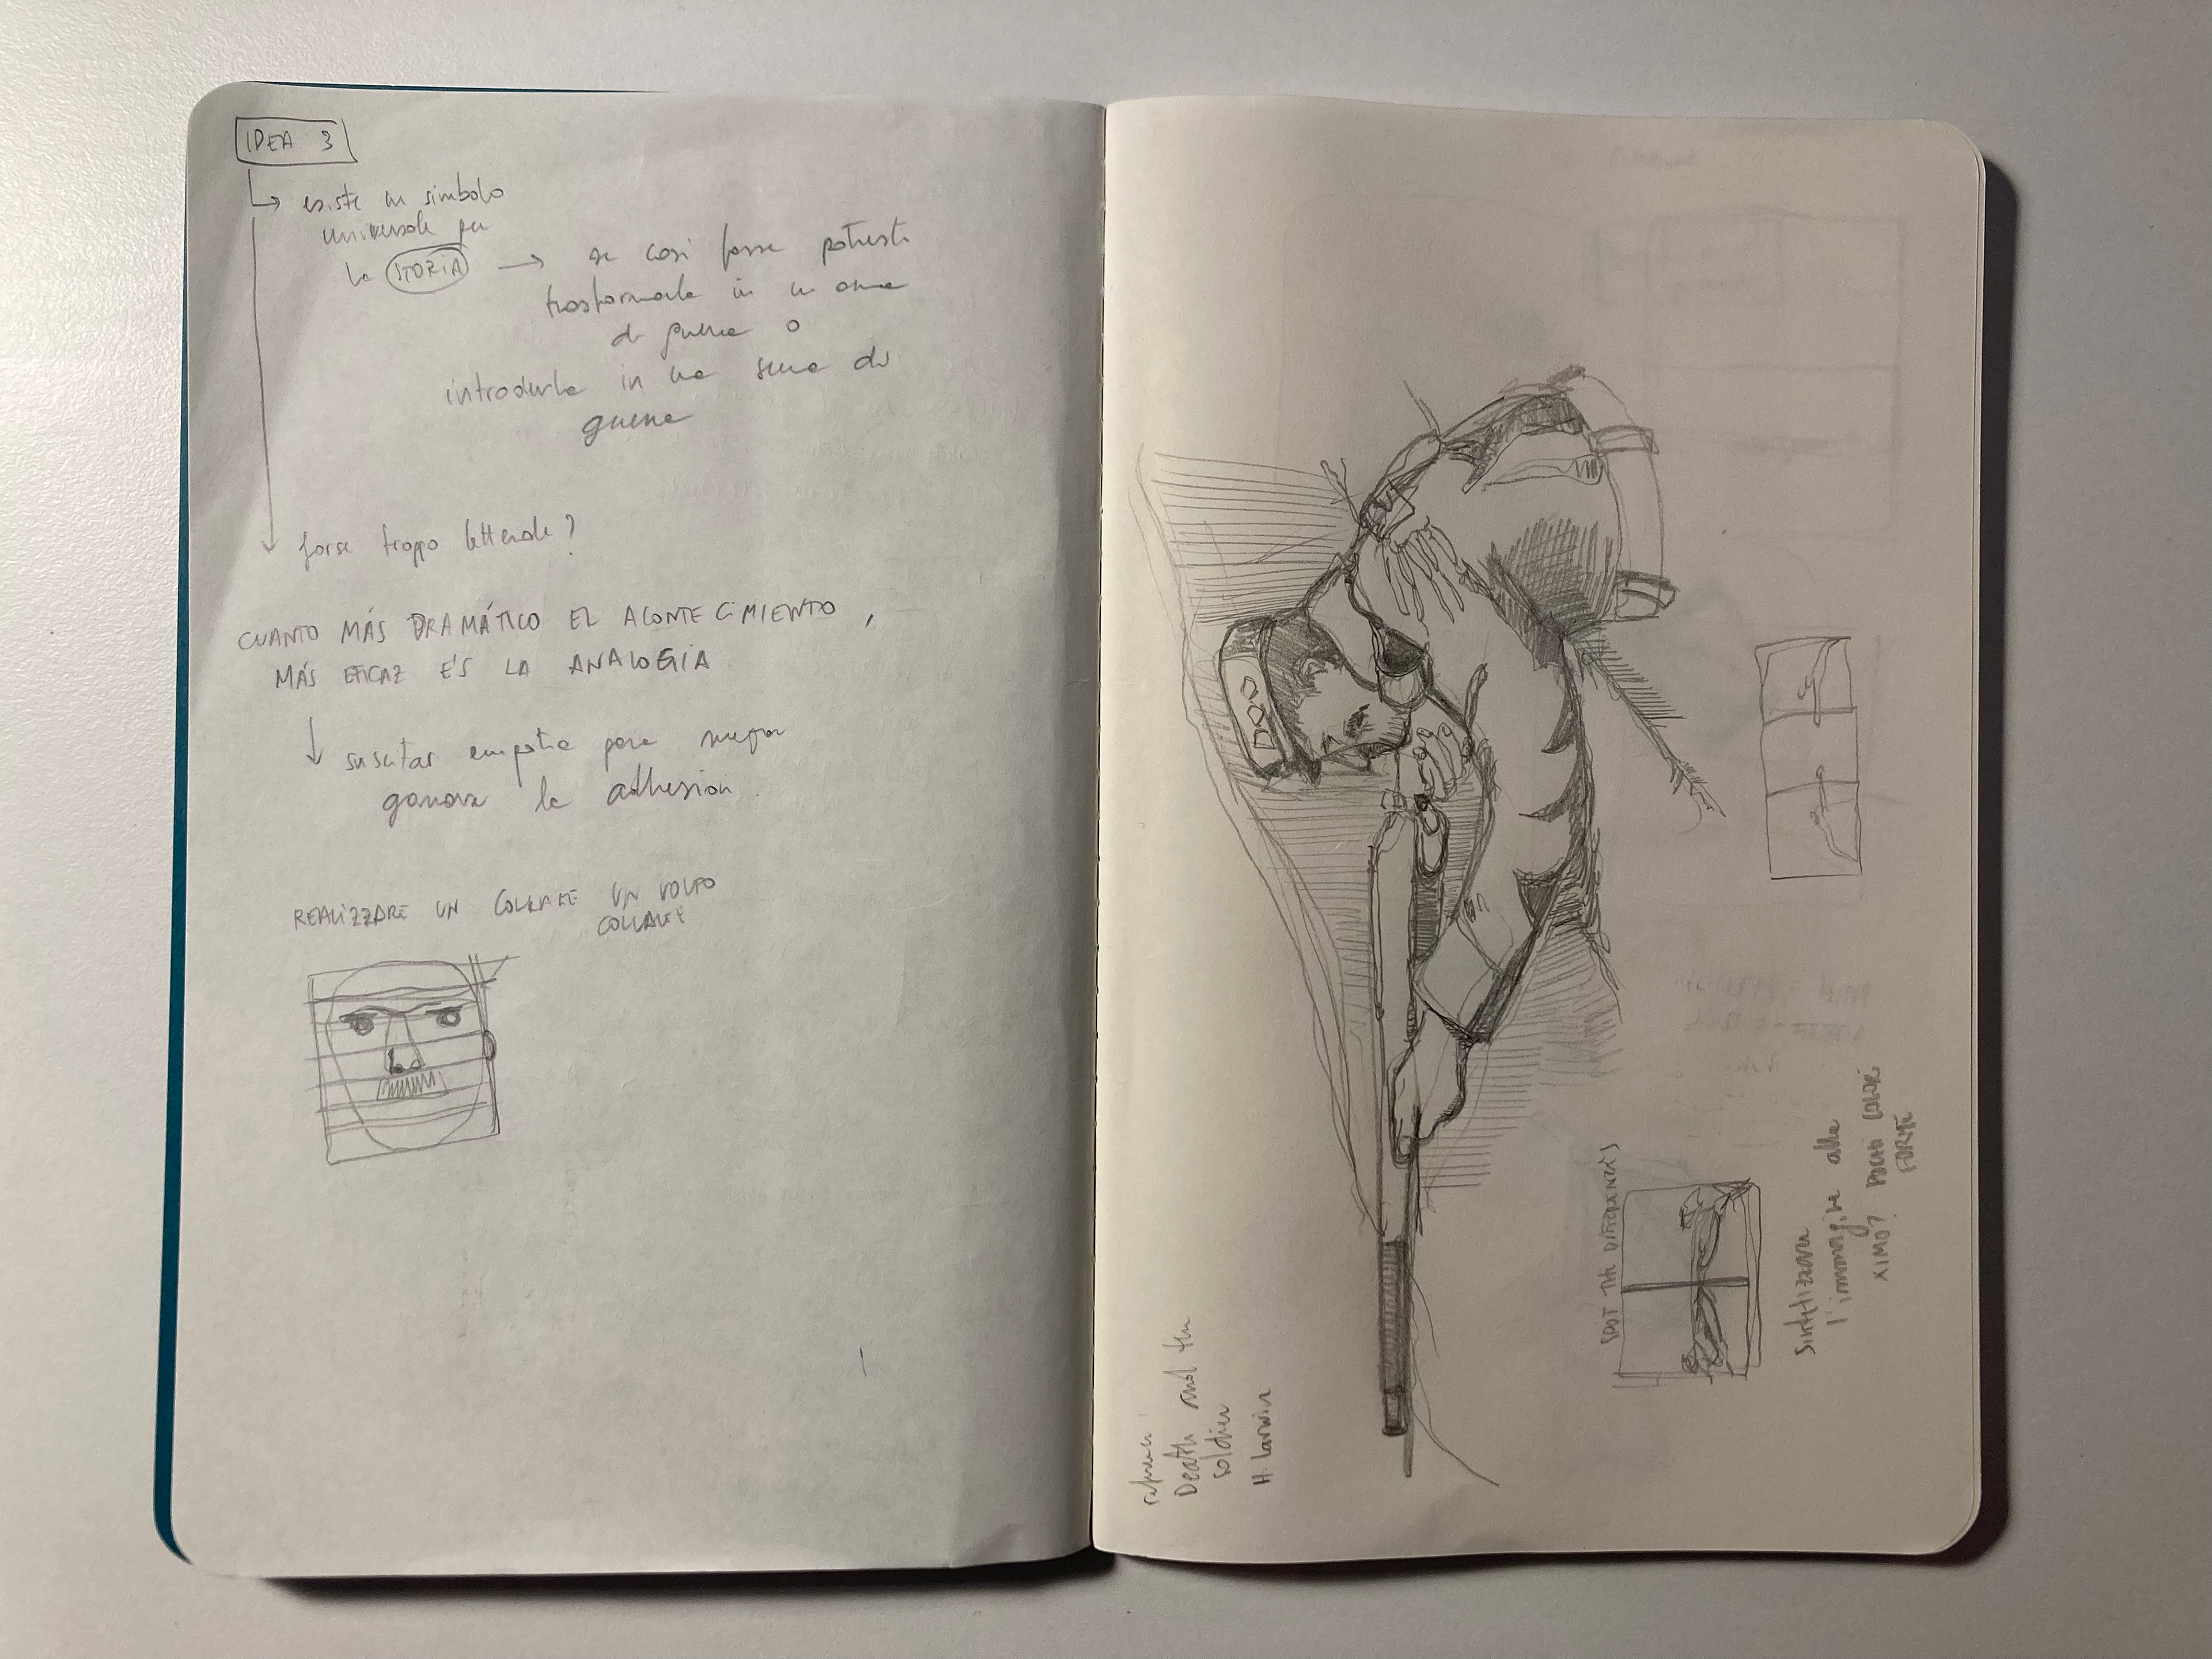 IDEA 3
esiste un simbolo
universale per
la STORIA → se così fosse potresti
trasformarla in un arma
di guerra o
introdurla in una scena di
guerra
forse troppo letterale?
CUANTO MÁS DRAMÁTICO EL ACONTECIMIENTO,
MÁS EFICAZ ES LA ANALOGÍA
suscitar empatia para mejor
ganar la adhesión.
REALIZZARE UN COLLAGE UN VOLTO
COLLAGE
Death and the
soldier
H. Larwin
SPOT THE DIFFERENCES
Sintetizzare
l'immagine alla
POCHI COLORI
FORME